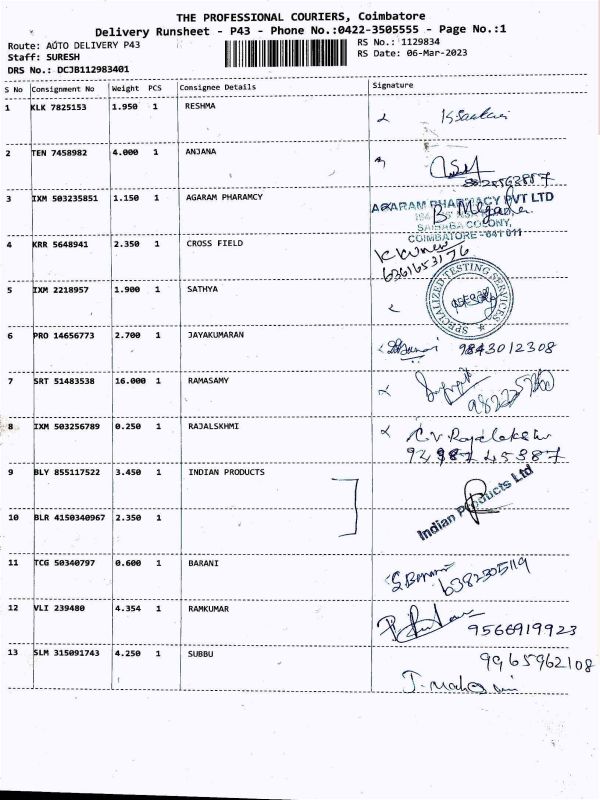 THE PROFESSIONAL COURIERS, Coimbatore
Delivery Runsheet - P43 - Phone No.:0422-3505555 - Page No.:1
Route: AUTO DELIVERY P43
RS No.: 1129834
Staff: SURESH
RS Date: 06-Mar-2023
DRS No.: DCJB112983401
S No Consignment No Weight PCS Consignee Details Signature
1 KLK 7825153 1.950 1 RESHMA
2 TEN 7458982 4.000 1 ANJANA
3 IXM 503235851 1.150 1 AGARAM PHARAMCY
AGARAM PHARMACY PVT LTD
SAIBABA COLONY,
COIMBATORE - 641 011
4 KRR 5648941 2.350 1 CROSS FIELD
6361653176
5 IXM 2218957 1.900 1 SATHYA
SPECIALIZED TESTING SERVICES
6 PRO 14656773 2.700 1 JAYAKUMARAN
9843012308
7 SRT 51483538 16.000 1 RAMASAMY
8 IXM 503256789 0.250 1 RAJALSKHMI
C.V Rajalakshmi
94987 45387
9 BLY 855117522 3.450 1 INDIAN PRODUCTS
Indian Products Ltd
10 BLR 4150340967 2.350 1
11 TCG 50340797 0.600 1 BARANI
6382305119
12 VLI 239480 4.354 1 RAMKUMAR
9566919923
13 SLM 315091743 4.250 1 SUBBU
9965962108